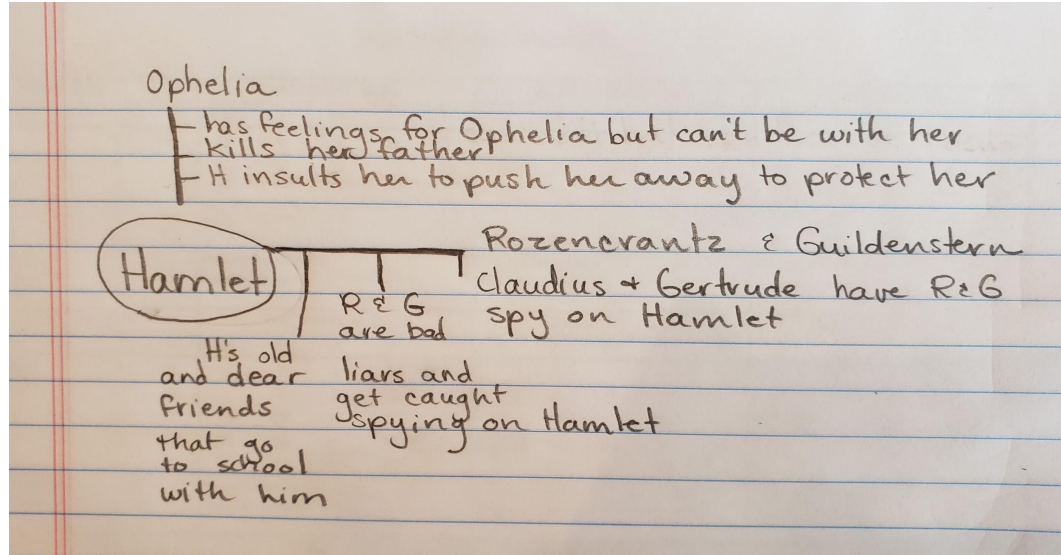 Ophelia
- has feelings for Ophelia but can't be with her
- kills her father
- H insults her to push her away to protect her
Hamlet
Rozencrantz & Guildenstern
Claudius + Gertrude have R&G
spy on Hamlet
R & G
are bad
liars and
get caught
spying on Hamlet
H's old
and dear
friends
that go
to school
with him